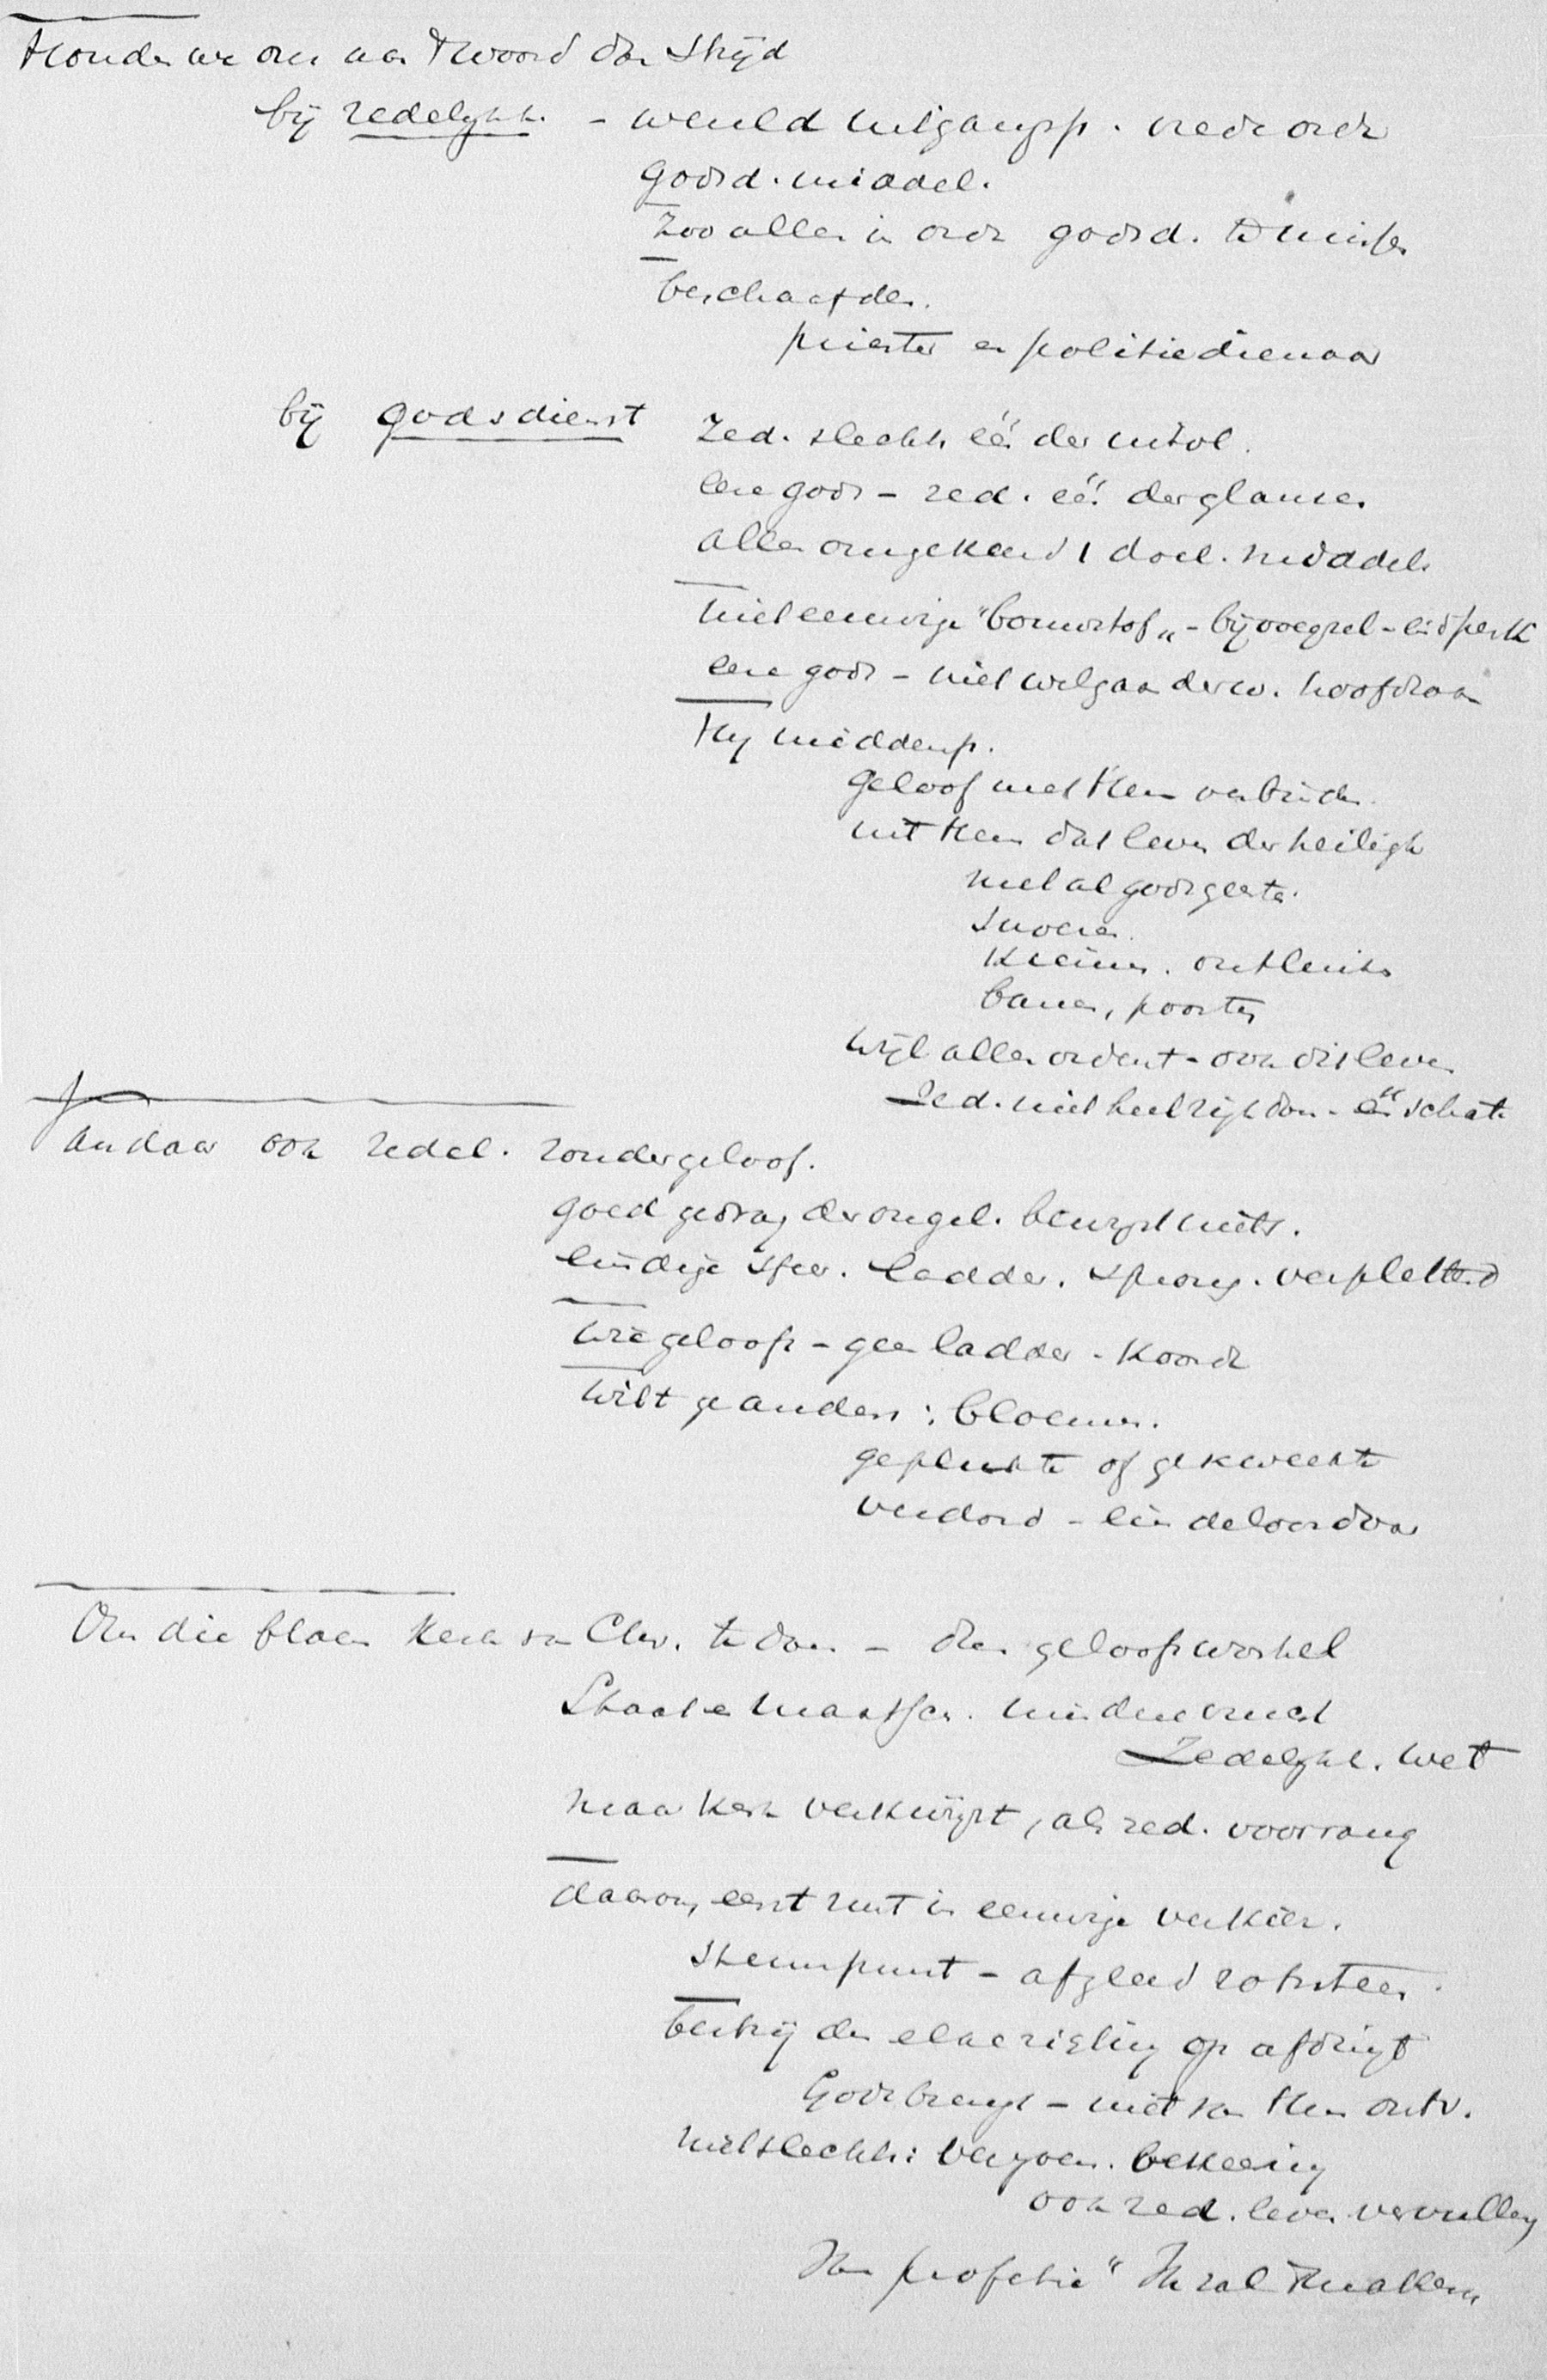 Houden we ons aan 't woord dan strijd
bij zedelijkh. - wereld uitgangsp. vrede orde
godsd. middel.
Zoo alles in orde godsd. te missen
beschaafden.
priester en politiedienaar
bij godsdienst Zed. slechts één der uitvl.
ere gods - zed. één der glansen
alles omgekeerd, doel. middel.
Niet eeuwige "bouwstof" - bijvoegsel - eindperk
ere gods - niet welgaan der w. hoofdzaak
Hij middenp.
geloof met Hem verbinden
uit Hem dat leven der heiligh
niet al godsgeesten.
snoeren
kiemen. ontluiken
banen, poorten
wijl alles ordent - ook dit leven
Zed. niet heel rijkdom - één schat
Vandaar ook zedel. zonder geloof.
goed gedrag der ongel. bewijst niets.
eindige sfeer. ladder. sprong. verpletterd
Wie gelooft - geen ladder - koord
Wilt ge anders: bloemen.
geplukte of gekweekte
verdord - eindeloos door
Om die bloem Kerk van Chr. te doen - dus geloofswortel
Staat en maatsch. minder vrucht
Zedelijkh. wet
maar kerk verkwijnt, als zed. voorrang
daarom, eerst rust in eeuwige verkiez.
steunpunt - afgleed rotssteen
bestrij den elke rigting op afdringt
Gode brengt - niet van Hem ontv.
niet slechts: verzoen. bekeering
ook zed. leven vervulling
Van profetie "Ik zal maken